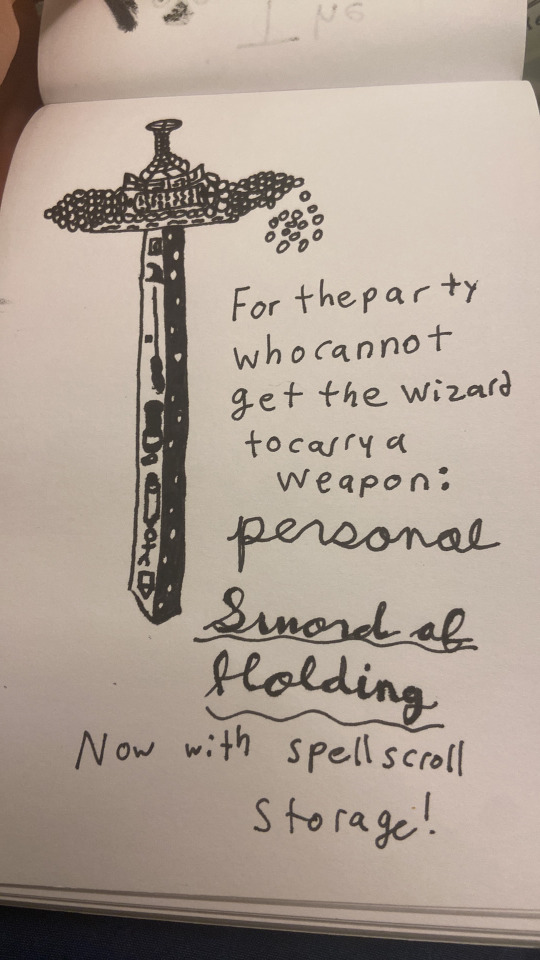 For the party
who cannot
get the wizard
to carry a
weapon:
personal
Sword of
Holding
Now with spell scroll
storage!